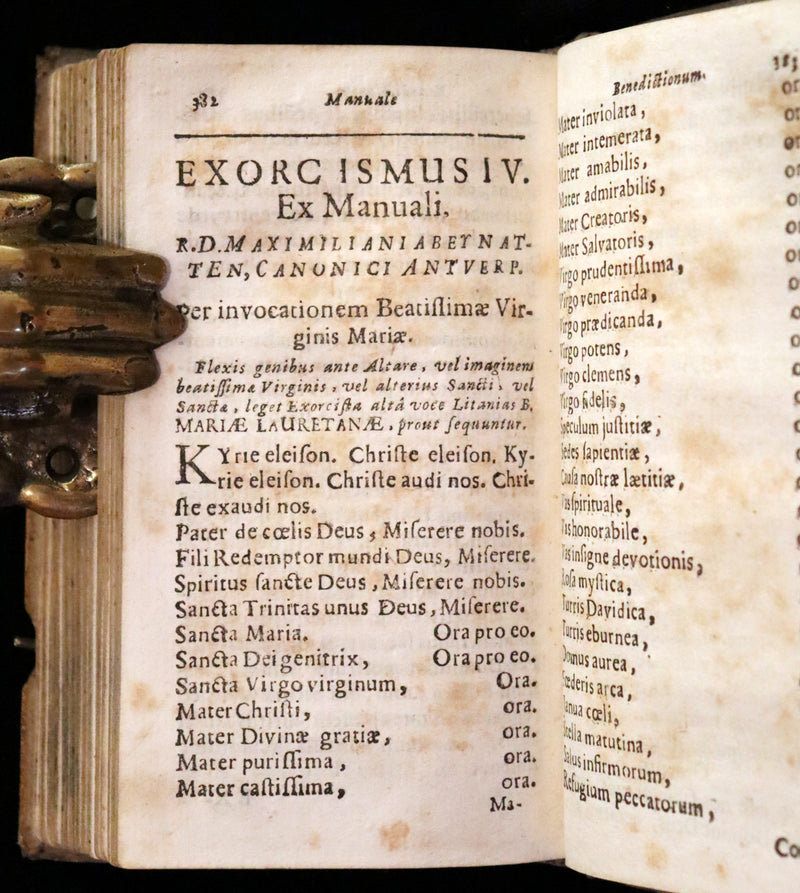 382 Manuale
EXORCISMUS IV.
Ex Manuali,
R.D. MAXIMILIANI ab EYNAT-
TEN, CANONICI ANTVERP.
Per invocationem Beatiſſimæ Vir-
ginis Mariæ.
Flexis genibus ante Altare, vel imaginem
beatiſſimæ Virginis, vel alterius Sancti, vel
Sanctæ, leget Exorciſta altâ voce Litanias B.
MARIÆ LAURETANÆ, prout ſequuntur.
KYrie eleiſon. Chriſte eleiſon. Ky-
rie eleiſon. Chriſte audi nos. Chri-
ſte exaudi nos.
Pater de cœlis Deus, Miſerere nobis.
Fili Redemptor mundi Deus, Miſerere.
Spiritus ſancte Deus, Miſerere nobis.
Sancta Trinitas unus Deus, Miſerere.
Sancta Maria. Ora pro eo.
Sancta Dei genitrix, Ora pro eo.
Sancta Virgo virginum, Ora.
Mater Chriſti, ora.
Mater Divinæ gratiæ, ora.
Mater puriſſima, ora.
Mater caſtiſſima, ora.
Ma-
Benedictionum. 383
Mater inviolata,
Mater intemerata,
Mater amabilis,
Mater admirabilis,
Mater Creatoris,
Mater Salvatoris,
Virgo prudentiſſima,
Virgo veneranda,
Virgo prædicanda,
Virgo potens,
Virgo clemens,
Virgo fidelis,
Speculum juſtitiæ,
Sedes ſapientiæ,
Cauſa noſtræ lætitiæ,
Vas ſpirituale,
Vas honorabile,
Vas inſigne devotionis,
Roſa myſtica,
Turris Davidica,
Turris eburnea,
Domus aurea,
Fœderis arca,
Janua cœli,
Stella matutina,
Salus infirmorum,
Refugium peccatorum,